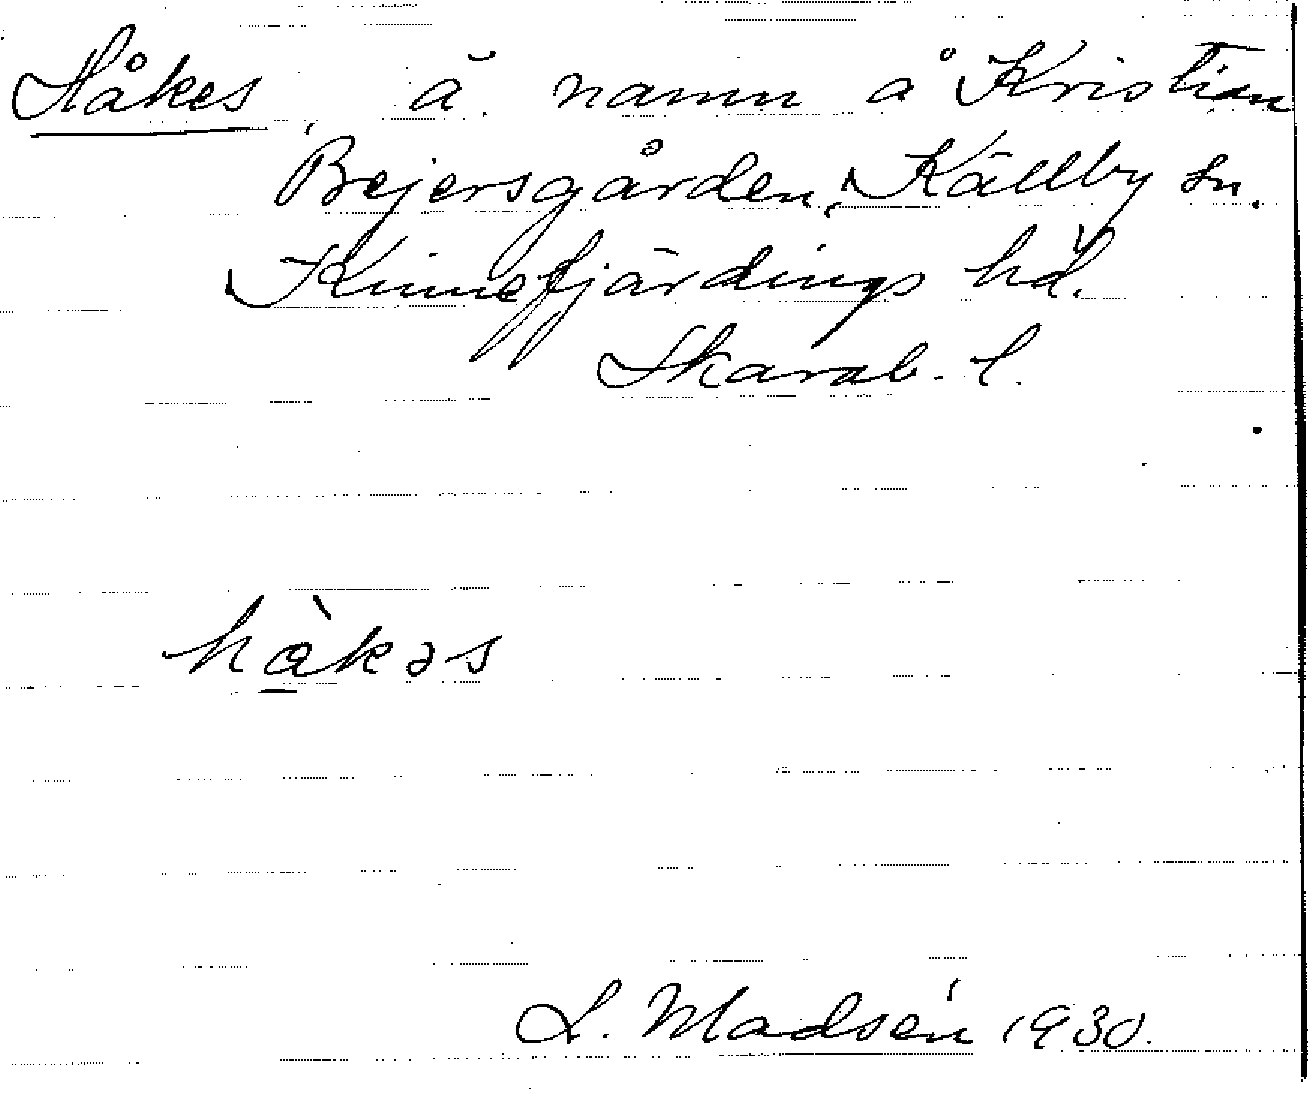 Håkes ä namn å Kristian
Bejersgården, Källby sn.
Kinnefjärdings hd.
Skarab. l.
hàkəs
L. Madsén 1930.